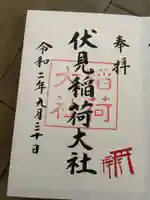 奉拝
伏見稲荷大社
稲荷
大社
令和二年九月三十日